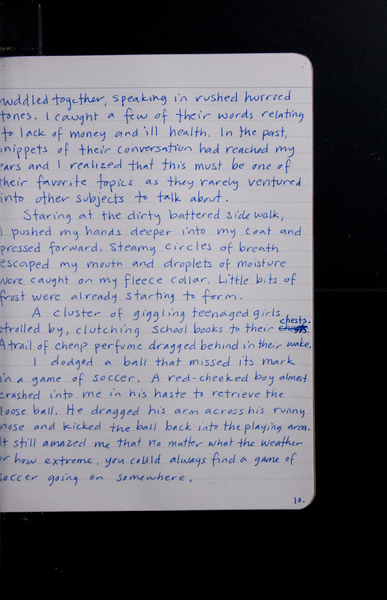 huddled together, speaking in rushed hurried
tones. I caught a few of their words relating
to lack of money and ill health. In the past,
snippets of their conversation had reached my
ears and I realized that this must be one of
their favorite topics as they rarely ventured
into other subjects to talk about.
Staring at the dirty battered sidewalk,
I pushed my hands deeper into my coat and
pressed forward. Steamy circles of breath
escaped my mouth and droplets of moisture
were caught on my fleece collar. Little bits of
frost were already starting to form.
A cluster of giggling teenaged girls
strolled by, clutching school books to their chests.
A trail of cheap perfume dragged behind in their wake.
I dodged a ball that missed its mark
in a game of soccer. A red-cheeked boy almost
crashed into me in his haste to retrieve the
loose ball. He dragged his arm across his runny
nose and kicked the ball back into the playing area.
It still amazed me that no matter what the weather
or how extreme, you could always find a game of
soccer going on somewhere.
10.